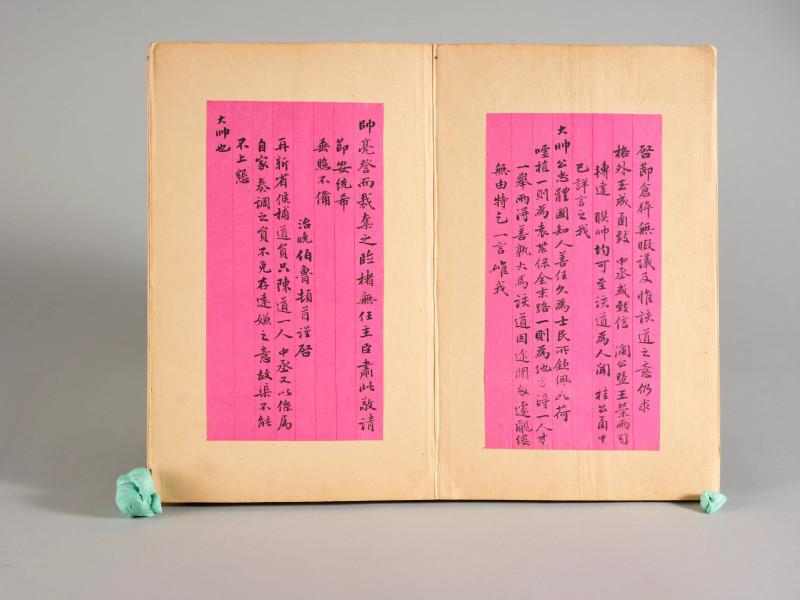 啓節倉猝無暇議及惟該道之意仍求
格外玉成函致 中丞或致信 瀾公暨王榮兩司
轉達 联帥均可至該道為人聞 桂公函中
已詳言之我
大帥公忠體國知人善任久為士民所欽佩如荷
噓植一則為袁某保全末路一則為地方得一人才
一舉兩得善孰大焉該道因途闊敬遠覼縷
無由特乞一言唯我
帥亮詧而裁奪之臨楮無任主臣肅此敬請
節安統希
垂照不備
治晚伯魯頓首謹啓
再新省候補道員只陳道一人 中丞又以係屬
自家奏調之員不免存遠嫌之意故渠不能
不上懇
大帥也